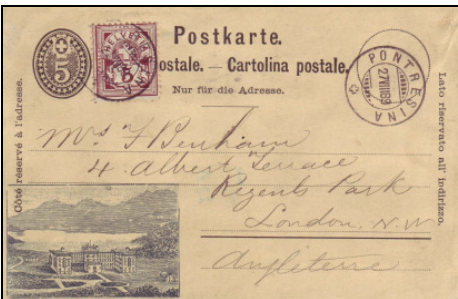 Postkarte.
ostale. — Cartolina postale.
Nur für die Adresse.
5
HELVETIA
5
PONTRESINA
27 VII 89
Côté réservé à l'adresse.
Lato riservato all' indirizzo.
Mrs J Benham
4. Albert Terrace
Regents Park
London. N. W
Angleterre